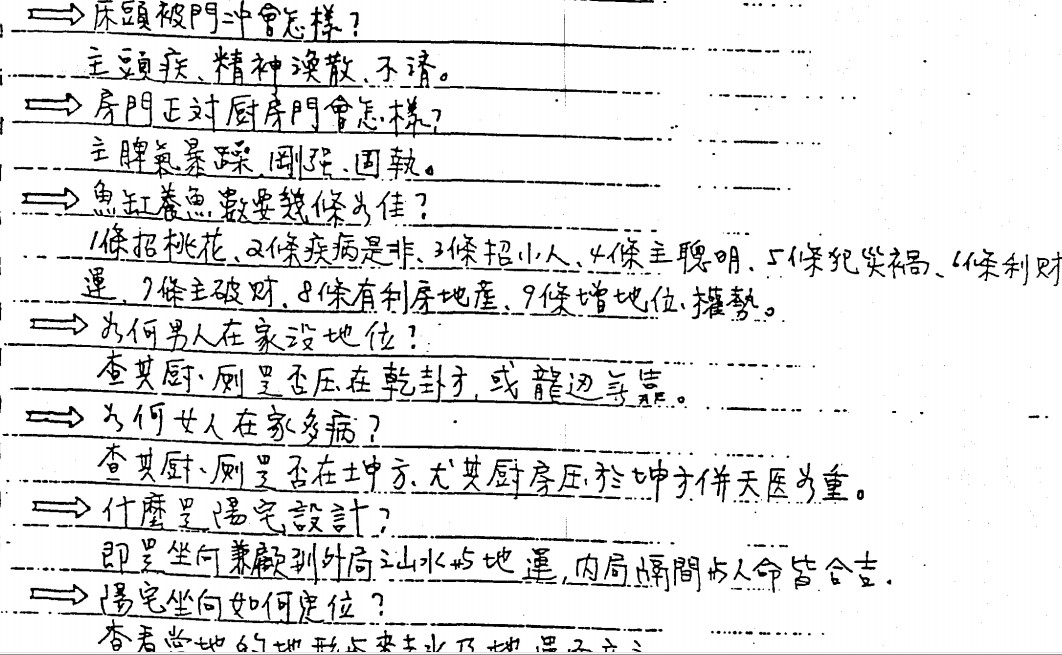 ⇒床頭被門冲會怎樣？
主頭疾、精神渙散、不清。
⇒房門正对厨房門會怎樣？
主脾氣暴躁、剛强、固執。
⇒魚缸養魚數要幾條为佳？
1條招桃花、2條疾病是非、3條招小人、4條主聰明、5條犯災禍、6條利財
運、7條主破財、8條有利房地產、9條增地位、權勢。
⇒为何男人在家没地位？
查其厨、厠是否压在乾卦方，或龍边無靠。
⇒为何女人在家多病？
查其厨、厠是否在坤方、尤其厨房压於坤方併天医为重。
⇒什麼是陽宅設計？
即是坐向兼顧到外局之山水与地運，内局隔間与人命皆合吉．
⇒陽宅坐向如何定位？
查看當地的地形与來去水及地運而立之